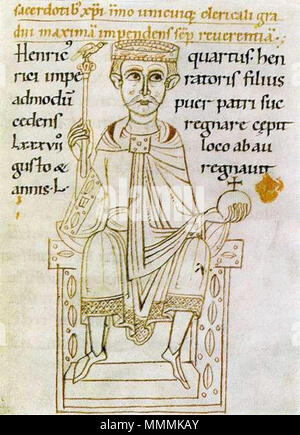 sacerdotib; xpi immo unicuiq; clericali gra
dui maximā impendens sēp reverentiā:
Henric9 quartus hen
rici impe ratoris filius
admodū puer patri suc
cedens regnare cepit
lxxxvii loco ab au
gusto & regnavit
annis·l·
alamy
alamy
Image ID: MMMKAY
www.alamy.com